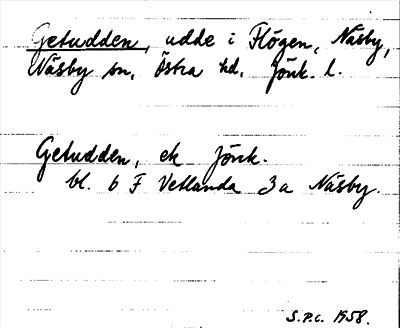 Getudden, udde i Flögen, Näsby,
Näsby sn, Östra hd, Jönk. l.
Getudden, ek Jönk.
bl. 6 F Vetlanda 3 a Näsby.
S.P.C. 1958.